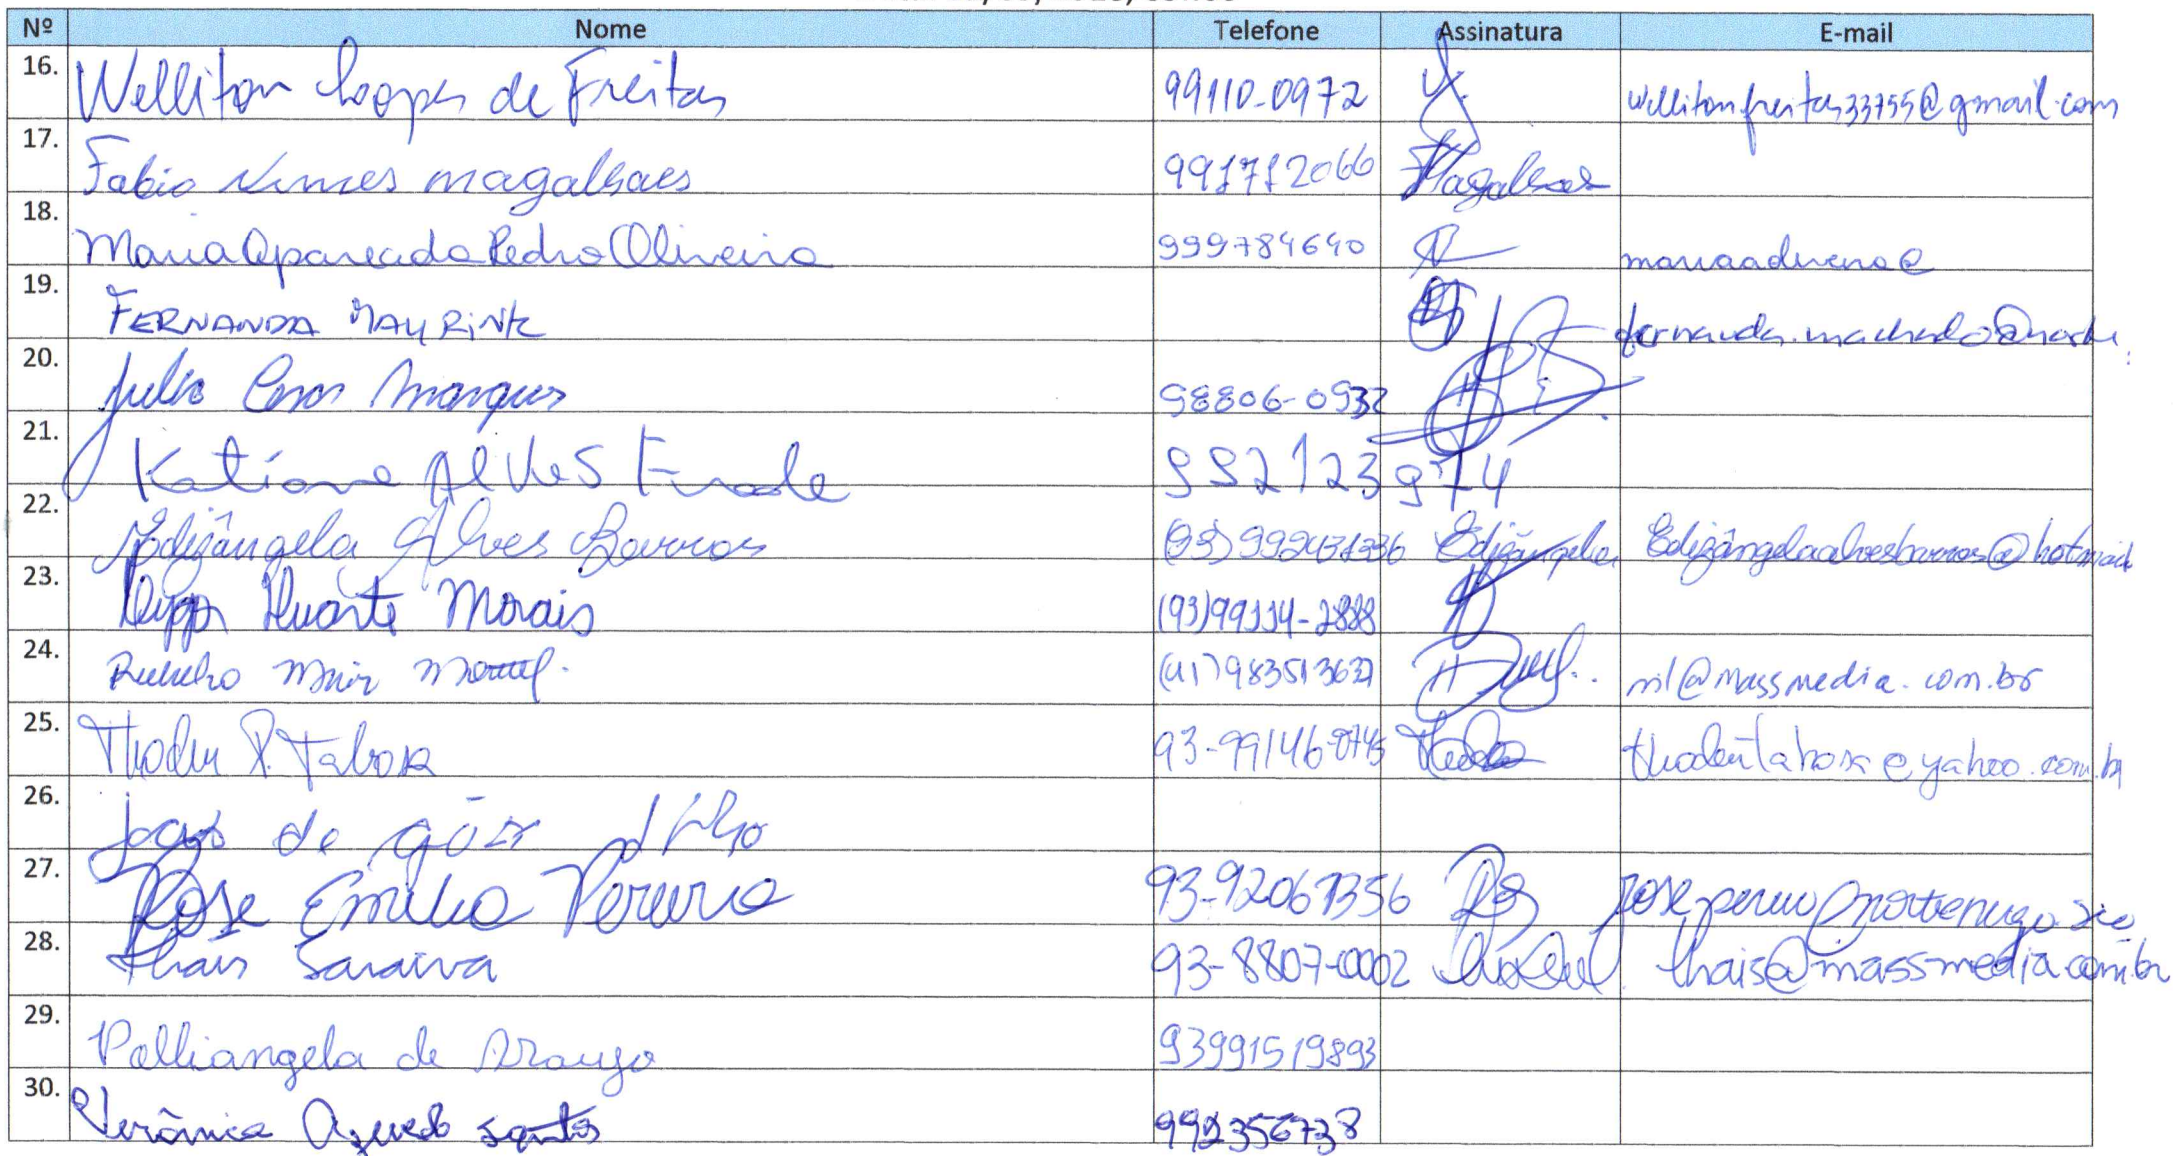 Nº Nome Telefone Assinatura E-mail
16. Welliton Loopes de Freitas 99110-0972 wellitonfreitas33755@gmail.com
17. Fabio Nunces magalhaes 991712066 Magalhaes
18. Maria Aparecida Pedro Oliveira 999784640
19. FERNANDA MAYRINK fernanda.machado@norte
20. Julio Cesar Marques 98806-0932
21. Katiane Alves 992123974
22. Edizângela Alves Barros (93) Edizângela Edizângelaalvesbarros@hotmail
23. Duarte Morais (93)99114-2888
24. nil@massmedia.com.br
25. P. Tabosa 93-99146-8745 @yahoo.com.br
26. de filho
27. Rose Emilia Pereira 93-92067356
28. Thais Saraiva 93-8807-0002 thais@massmedia.com.br
29. Palliangela de Araujo 93991519893
30. Verônica Azevedo santos 992356738